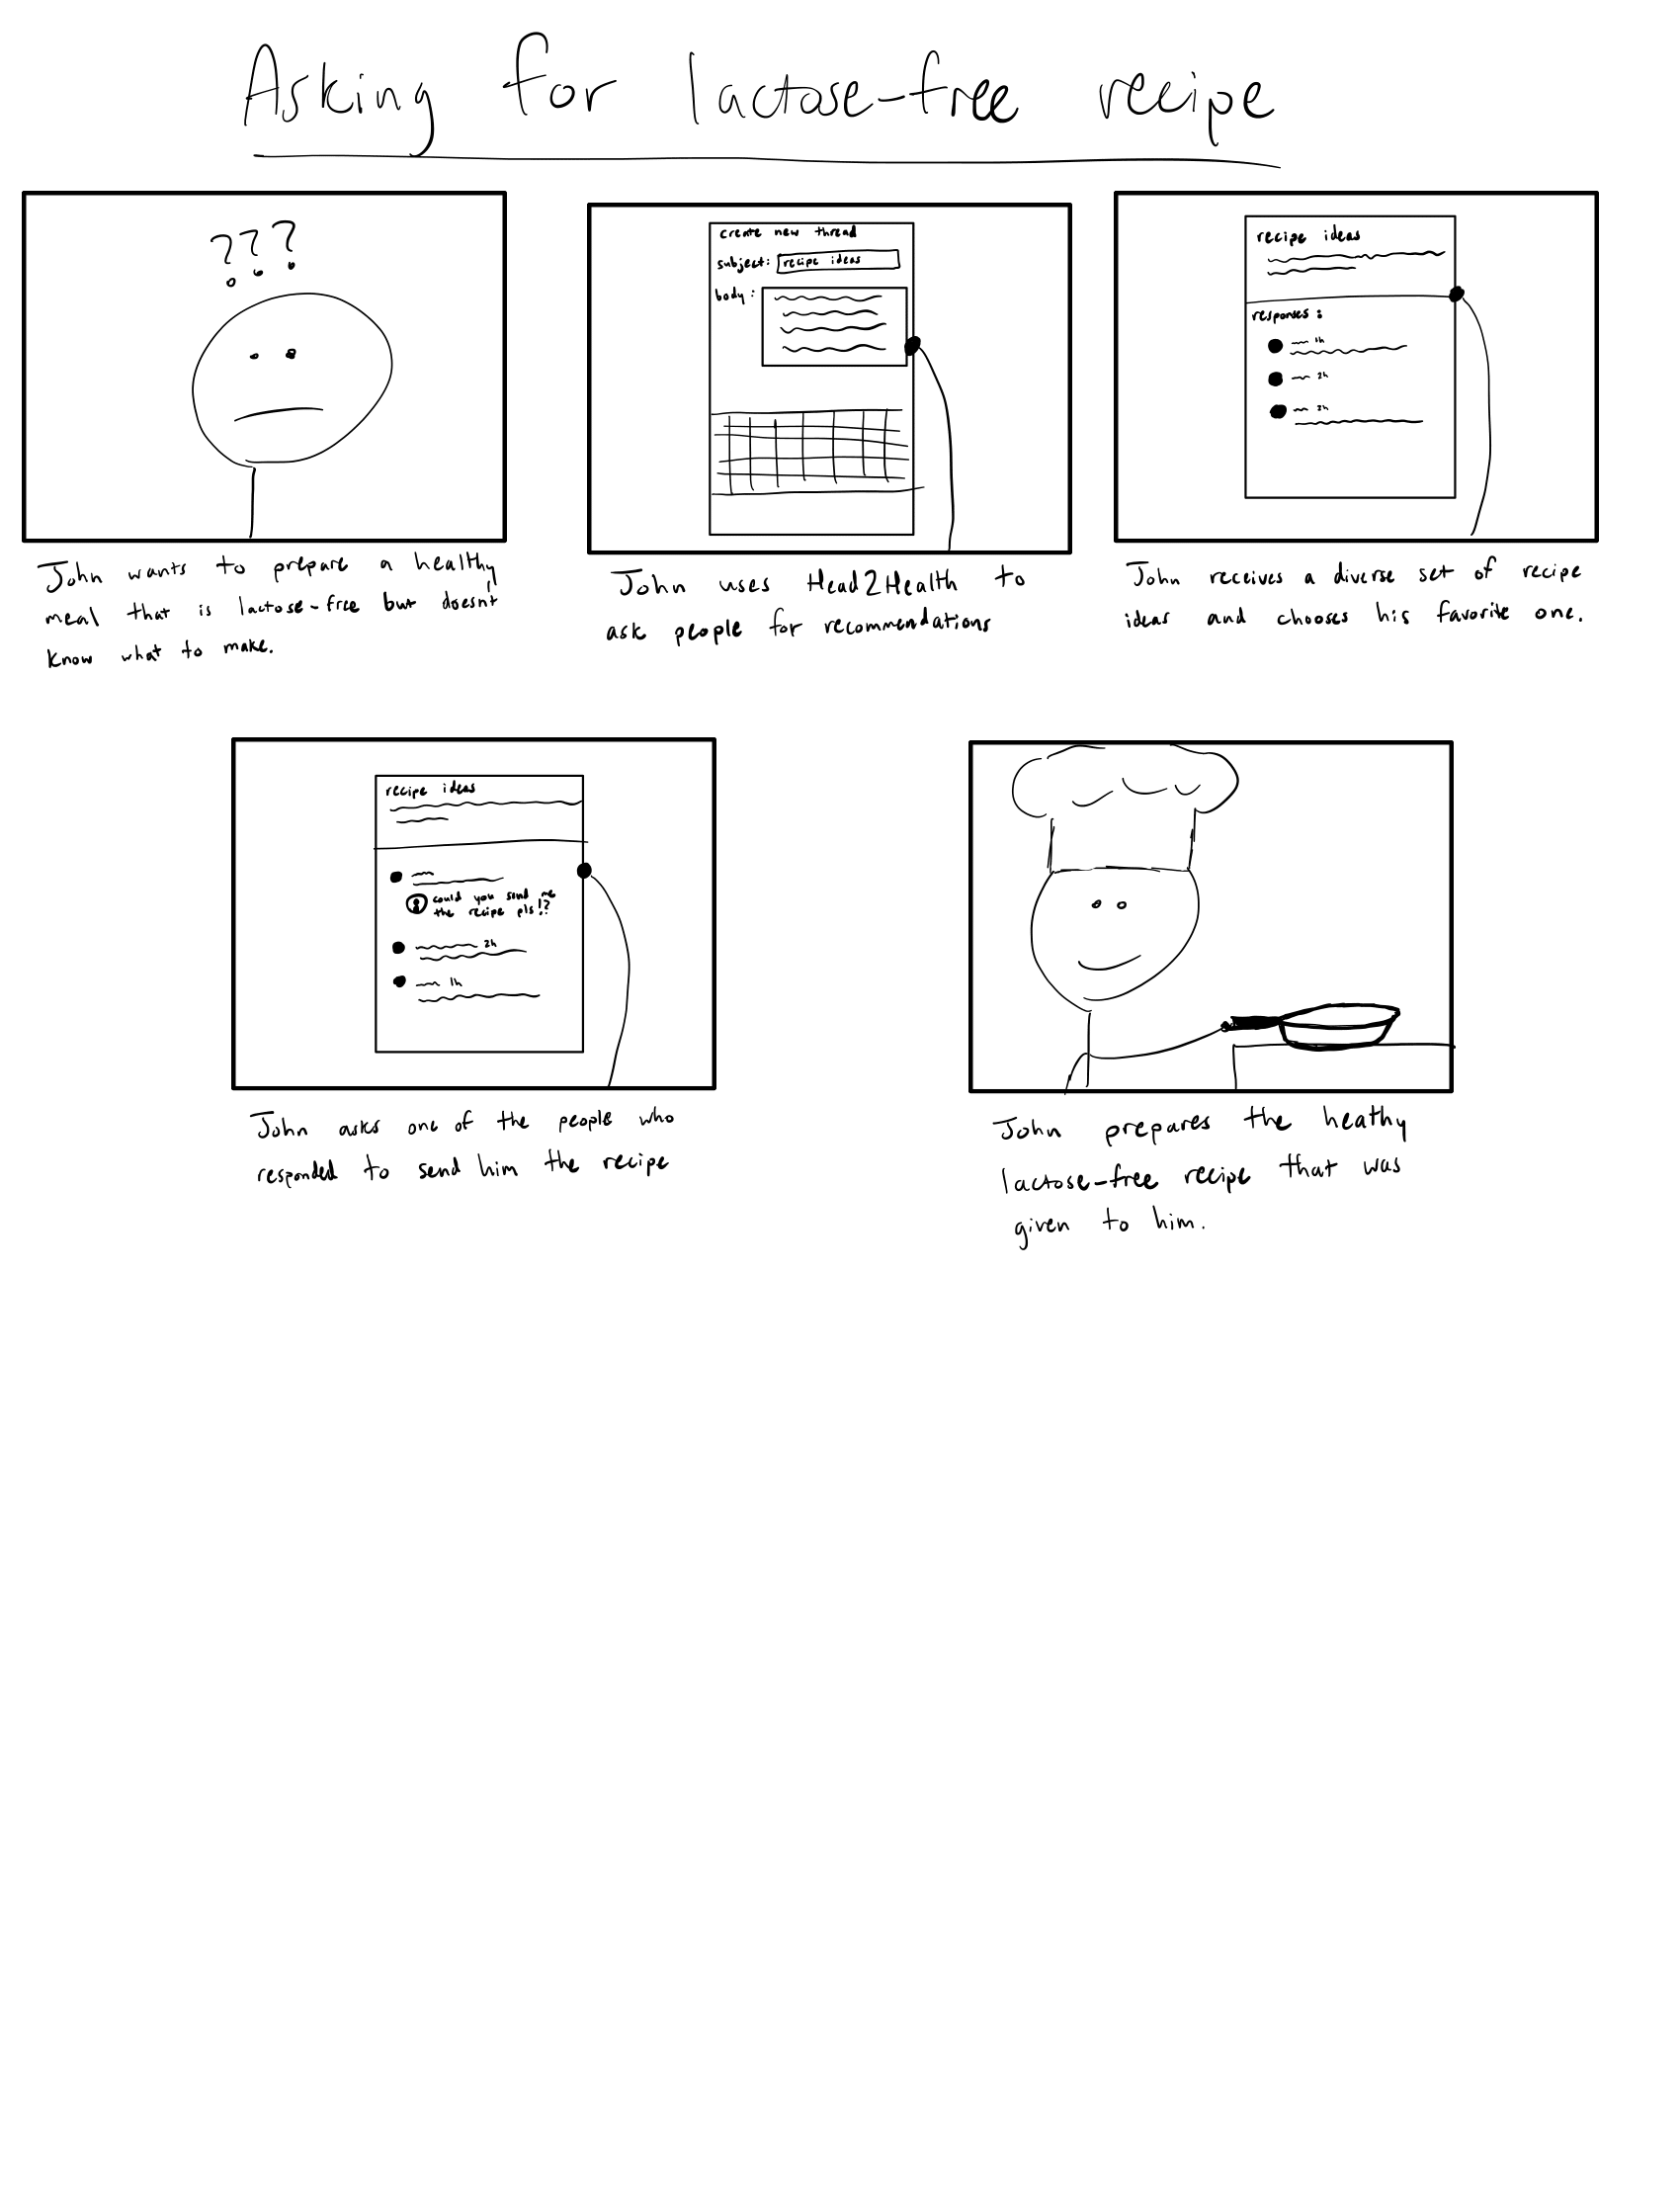 Asking for lactose-free recipe
???
John wants to prepare a healthy
meal that is lactose-free but doesn't
know what to make.
create new thread
subject: recipe ideas
body:
John uses Head2Health to
ask people for recommendations
recipe ideas
responses:
1h
2h
3h
John receives a diverse set of recipe
ideas and chooses his favorite one.
recipe ideas
could you send me
the recipe pls!?
2h
1h
John asks one of the people who
responded to send him the recipe
John prepares the heathy
lactose-free recipe that was
given to him.